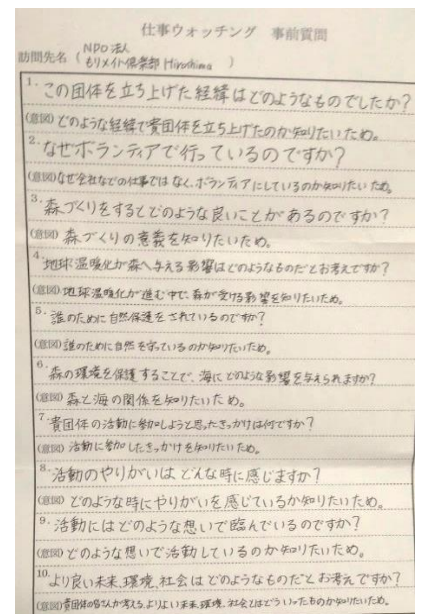 仕事ウォッチング 事前質問
NPO法人
訪問先名（もりメイト倶楽部Hiroshima）
1. この団体を立ち上げた経緯はどのようなものでしたか?
(意図) どのような経緯で貴団体を立ち上げたのか知りたいため。
2. なぜボランティアで行っているのですか?
(意図) なぜ会社などの仕事ではなく、ボランティアにしているのか知りたいため。
3. 森づくりをするとどのような良いことがあるのですか?
(意図) 森づくりの意義を知りたいため。
4. 地球温暖化が森へ与える影響はどのようなものだとお考えですか?
(意図) 地球温暖化が進む中で、森が受ける影響を知りたいため。
5. 誰のために自然保護をされているのですか?
(意図) 誰のために自然を守っているのか知りたいため。
6. 森の環境を保護することで、海にどのような影響を与えられますか?
(意図) 森と海の関係を知りたいため。
7. 貴団体の活動に参加しようと思ったきっかけは何ですか?
(意図) 活動に参加したきっかけを知りたいため。
8. 活動のやりがいはどんな時に感じますか?
(意図) どのような時にやりがいを感じているか知りたいため。
9. 活動にはどのような想いで臨んでいるのですか?
(意図) どのような想いで活動しているのか知りたいため。
10. より良い未来、環境、社会はどのようなものだとお考えですか?
(意図) 貴団体の皆さんが考える、よりよい未来、環境、社会とはどういったものか知りたいため。